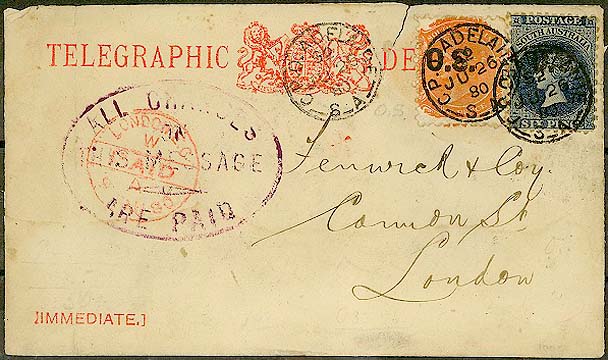 TELEGRAPHIC DE
G.P.O. ADELAIDE
S.A.
G.P.O. ADELAIDE
JU 26
80
S.A.
O.S.
POSTAGE
SOUTH AUSTRALIA
SIX PENCE
S.A.
ALL CHARGES
ON
THIS MESSAGE
ARE PAID
LONDON
W
PAID
Fenwick & Coy.
Cannon St
London
[IMMEDIATE.]